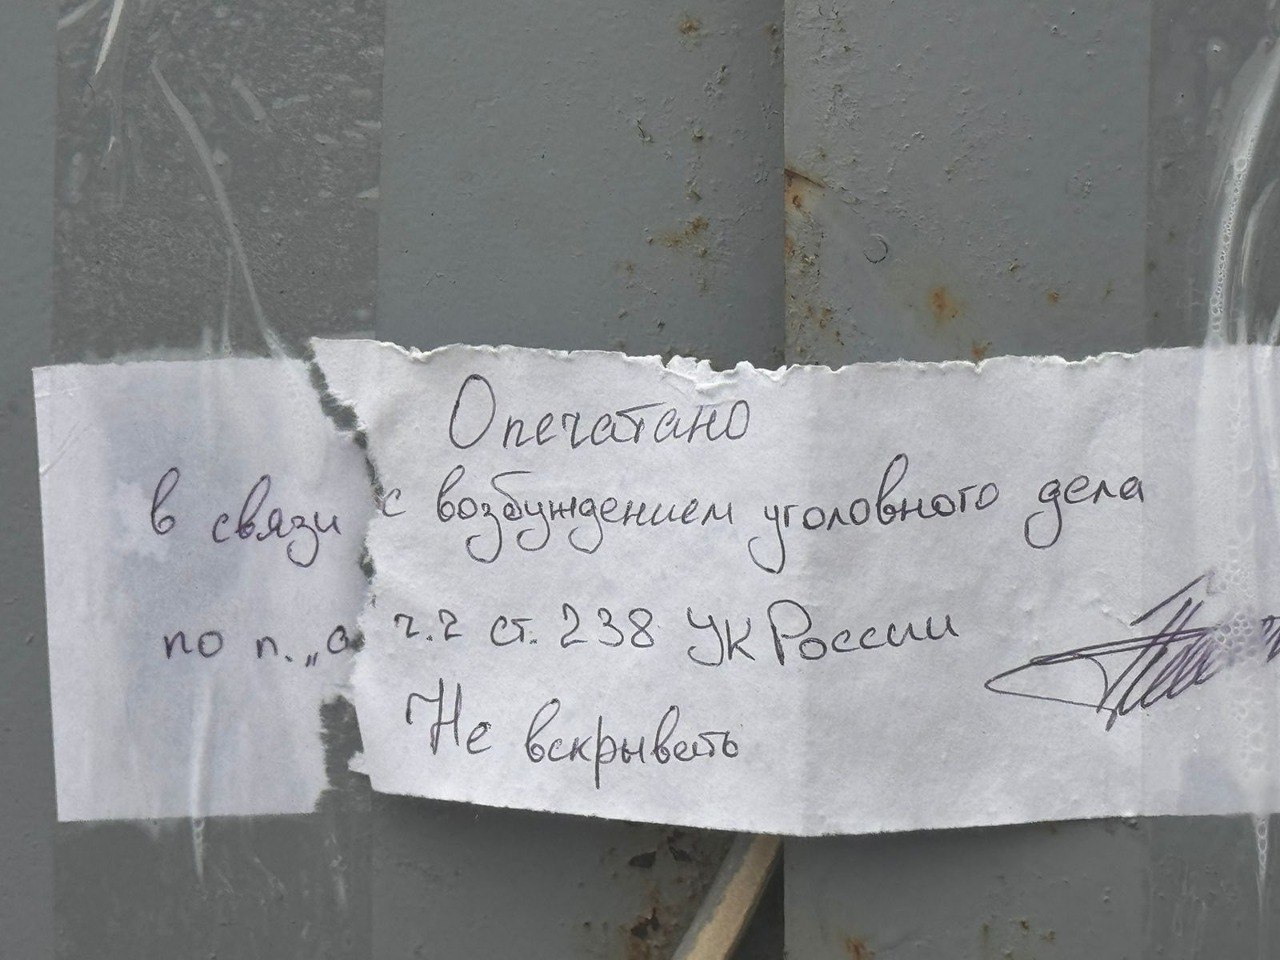 Опечатано
в связи с возбуждением уголовного дела
по п. „а ч.2 ст. 238 УК России
Не вскрывать